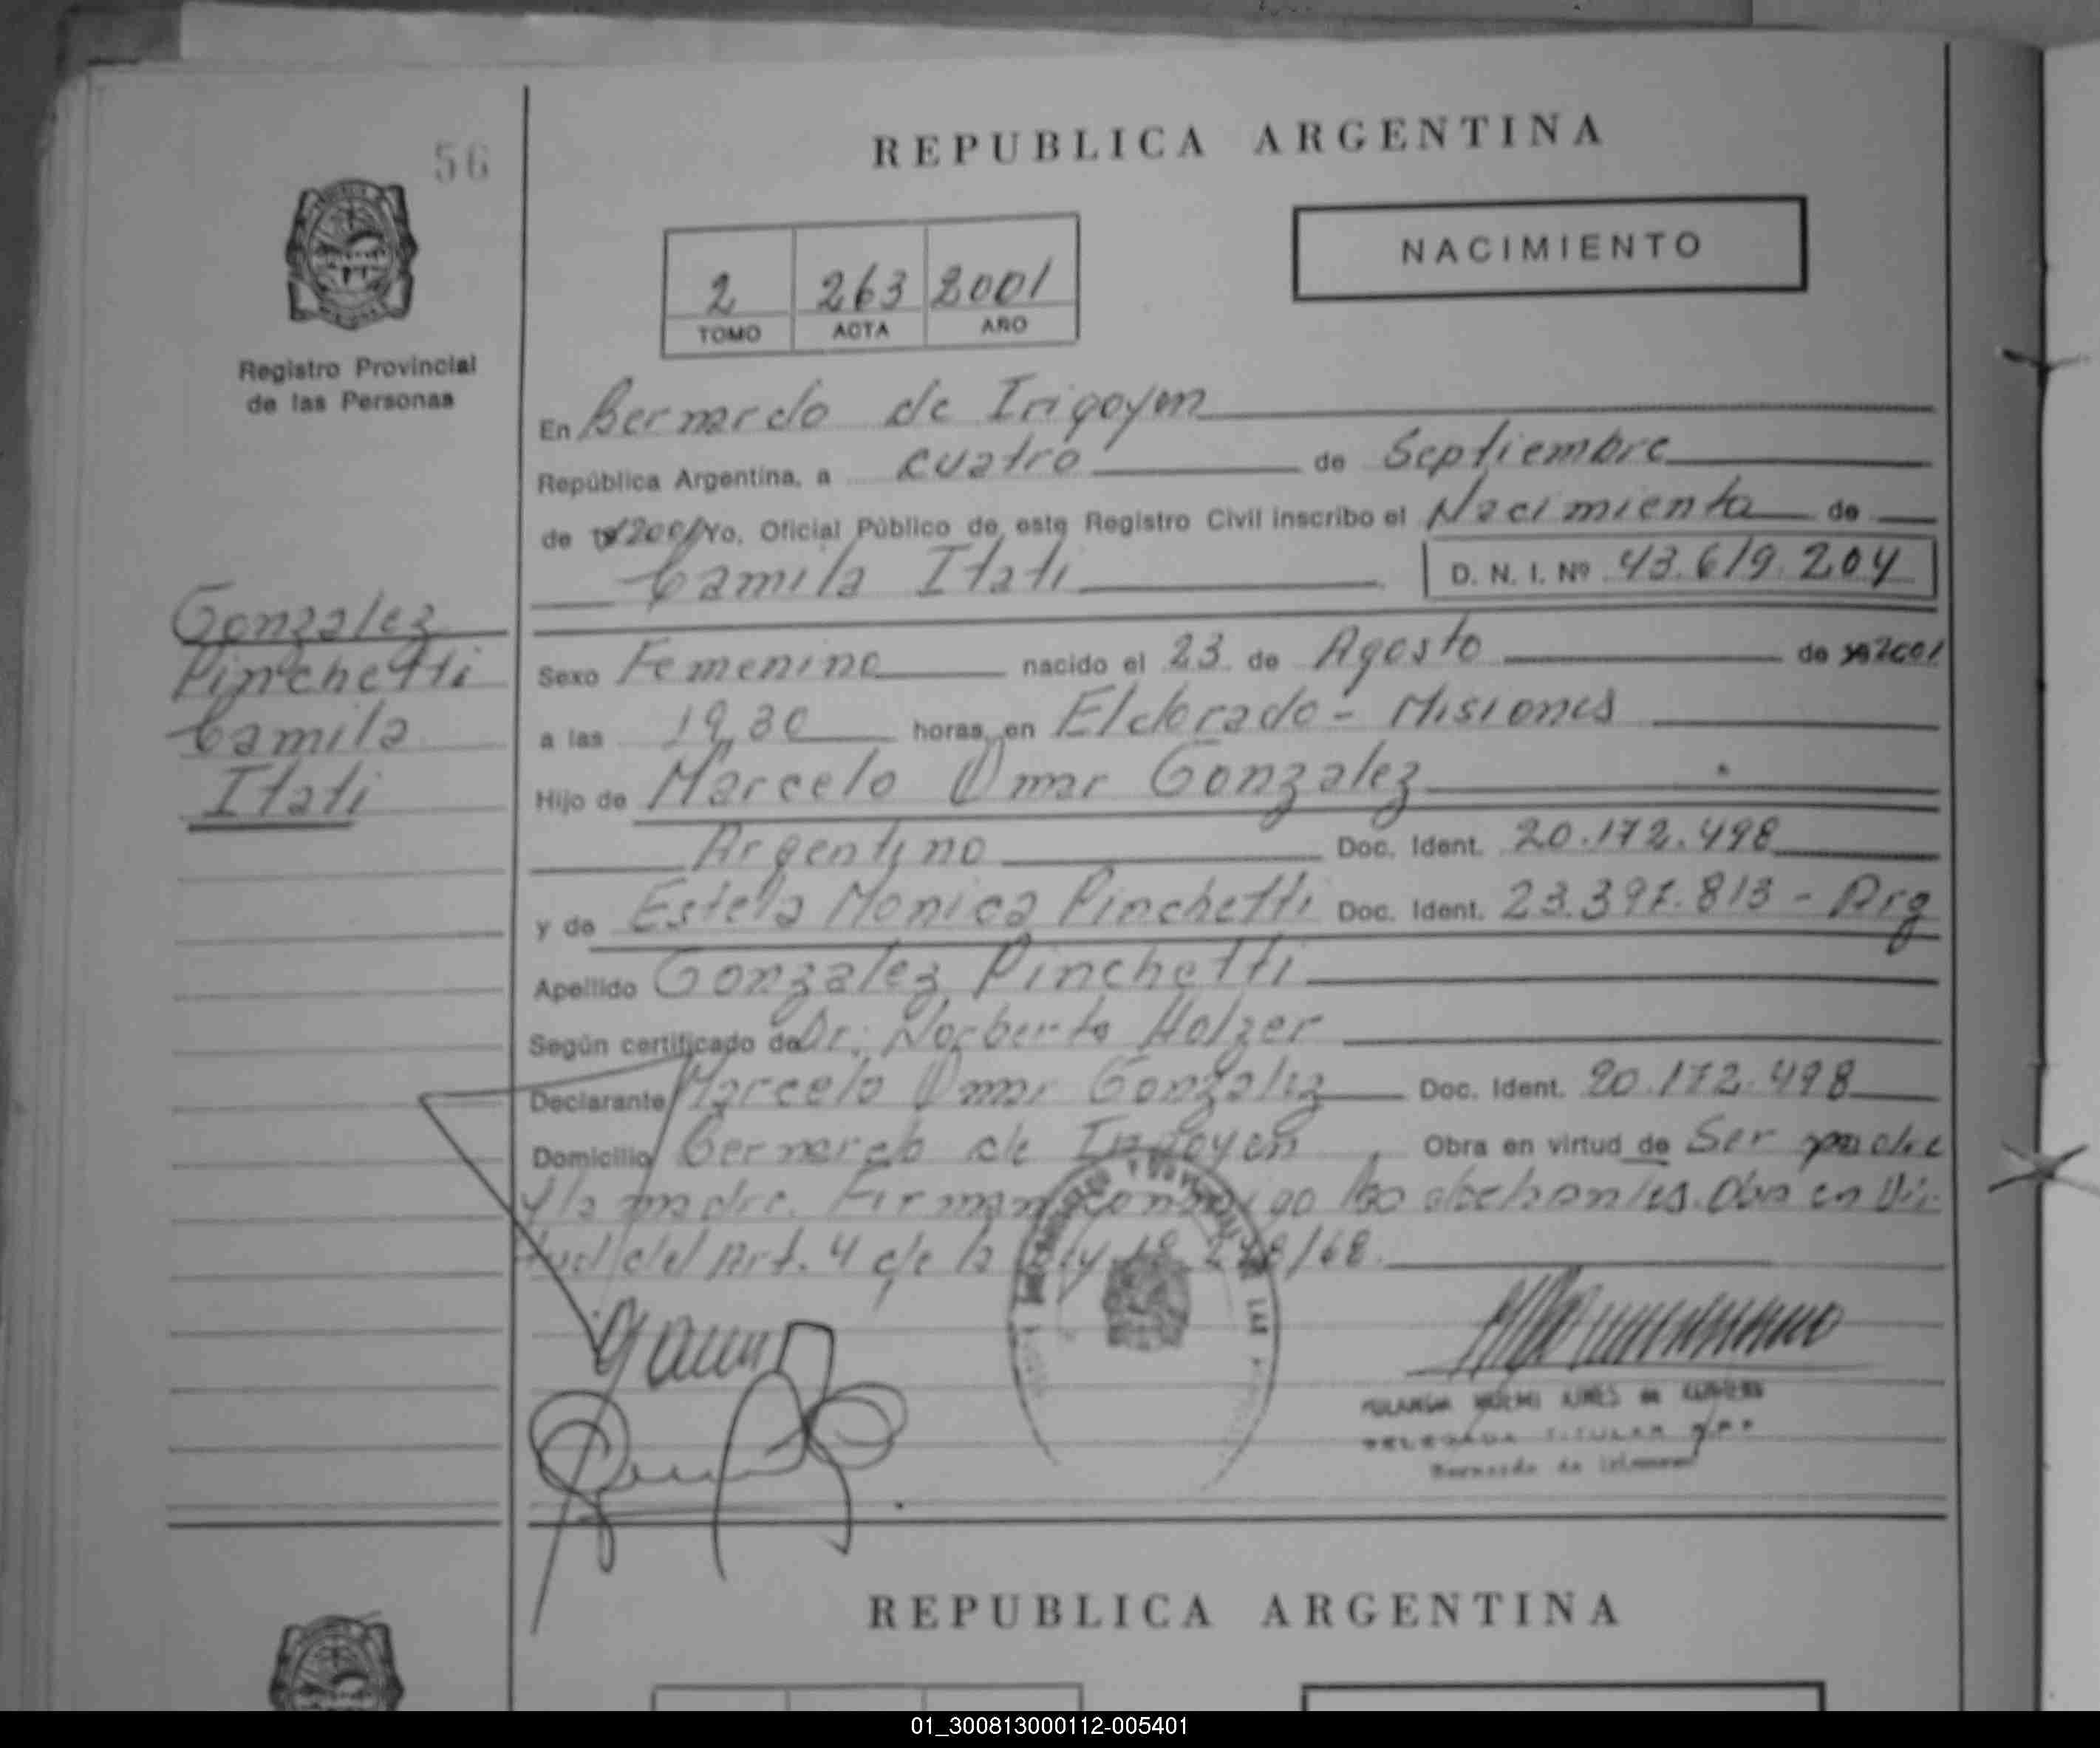 56
REPUBLICA ARGENTINA
NACIMIENTO
2 263 2001
TOMO ACTA AÑO
Registro Provincial
de las Personas
En Bernardo de Irigoyen
República Argentina, a cuatro de Septiembre
de 2001 Yo, Oficial Público de este Registro Civil inscribo el Nacimiento de
Camila Itati D. N. I. Nº 43.619.204
Gonzalez
Pinchetti
Camila
Itati
Sexo Femenino nacido el 23 de Agosto de 2001
a las 19,30 horas, en Eldorado - Misiones
Hijo de Marcelo Omar Gonzalez
Argentino Doc. Ident. 20.172.498
y de Estela Monica Pinchetti Doc. Ident. 23.397.813 - Arg
Apellido Gonzalez Pinchetti
Según certificado de Dr. Norberto Holzer
Declarante Marcelo Omar Gonzalez Doc. Ident. 20.172.498
Domicilio Bernardo de Irigoyen, Obra en virtud de Ser padre
y la madre. Firman conmigo los declarantes. Obra en Vir-
tud del Art. 4 de la Ley 18.248/68.
Bernardo de Irigoyen
REPUBLICA ARGENTINA
01_300813000112-005401